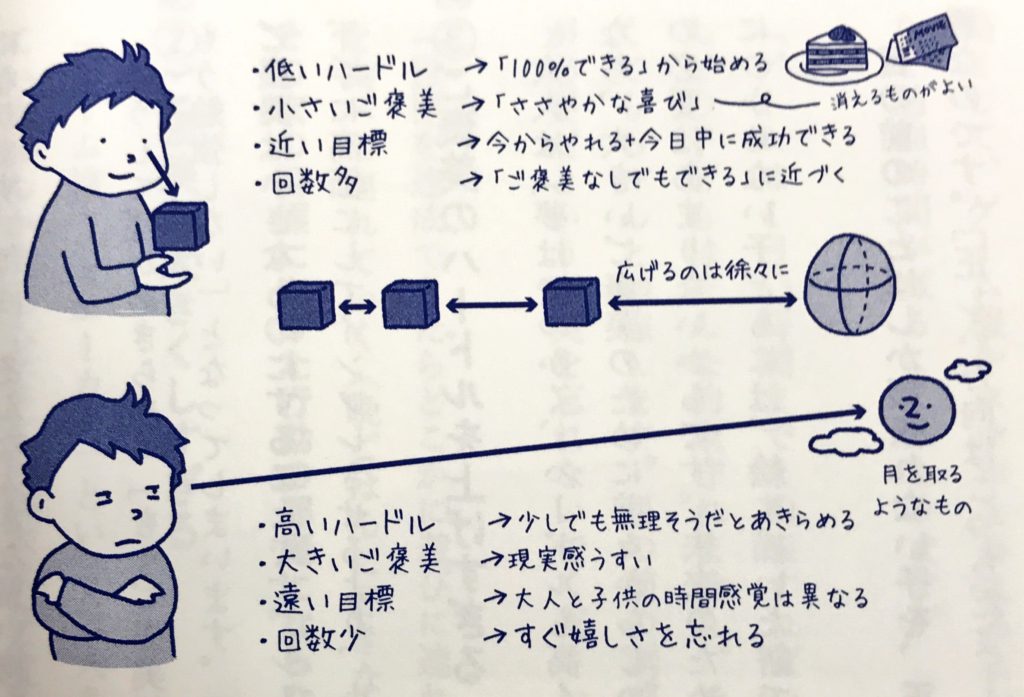 ・低いハードル →「100%できる」から始める
MOVIE
・小さいご褒美 →「ささやかな喜び」
消えるものがよい
・近い目標 →今からやれる+今日中に成功できる
・回数多 →「ご褒美なしでもできる」に近づく
広げるのは徐々に
月を取る
ようなもの
・高いハードル →少しでも無理そうだとあきらめる
・大きいご褒美 →現実感うすい
・遠い目標 →大人と子供の時間感覚は異なる
・回数少 →すぐ嬉しさを忘れる